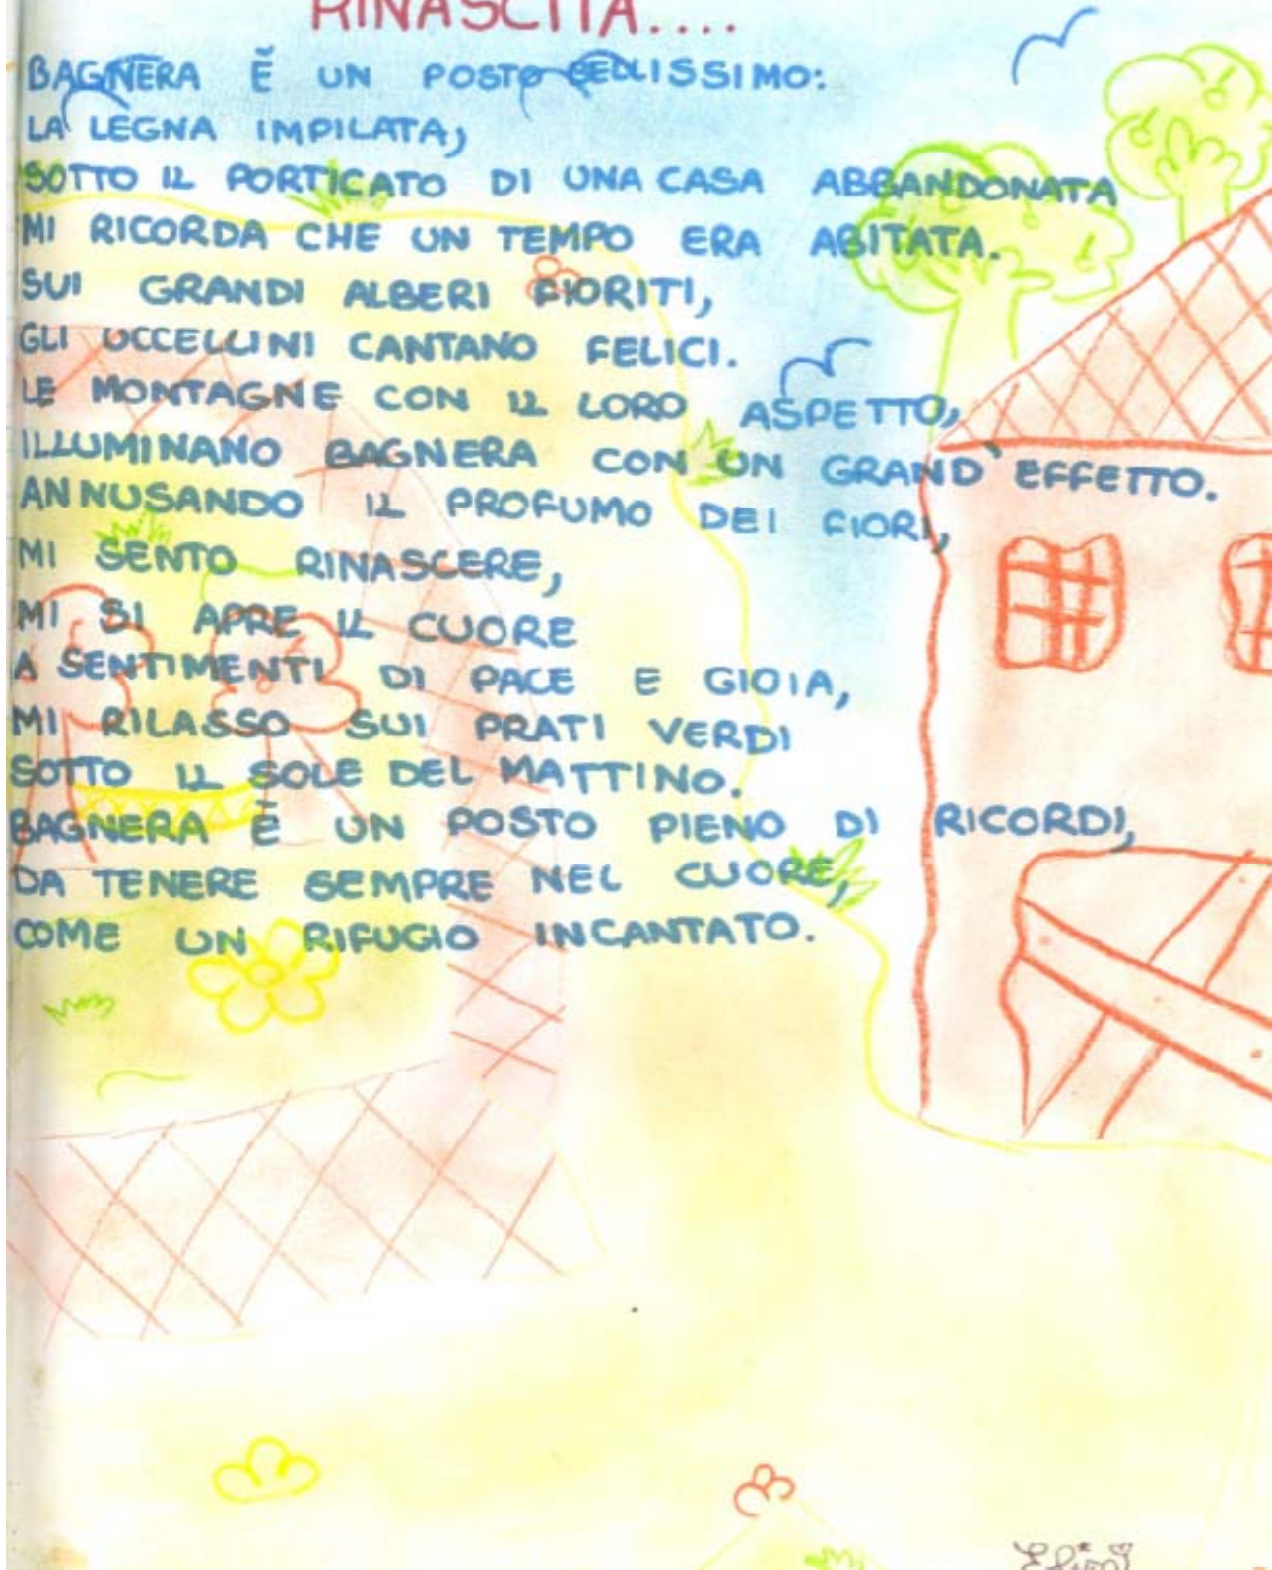 RINASCITA....
BAGNERA È UN POSTO BELLISSIMO:
LA LEGNA IMPILATA,
SOTTO IL PORTICATO DI UNA CASA ABBANDONATA
MI RICORDA CHE UN TEMPO ERA ABITATA.
SUI GRANDI ALBERI FIORITI,
GLI UCCELLINI CANTANO FELICI.
LE MONTAGNE CON IL LORO ASPETTO,
ILLUMINANO BAGNERA CON UN GRAND'EFFETTO.
ANNUSANDO IL PROFUMO DEI FIORI,
MI SENTO RINASCERE,
MI SI APRE IL CUORE
A SENTIMENTI DI PACE E GIOIA,
MI RILASSO SUI PRATI VERDI
SOTTO IL SOLE DEL MATTINO.
BAGNERA È UN POSTO PIENO DI RICORDI,
DA TENERE SEMPRE NEL CUORE,
COME UN RIFUGIO INCANTATO.